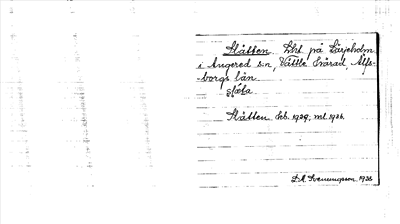 Slätten. Lht. på Lärjeholm
i Angered s:n, Vättle härad, Älfs-
-borgs län.
slæta.
Slätten kb. 1929; ml 1926.
D. A. Svenungsson. 1932